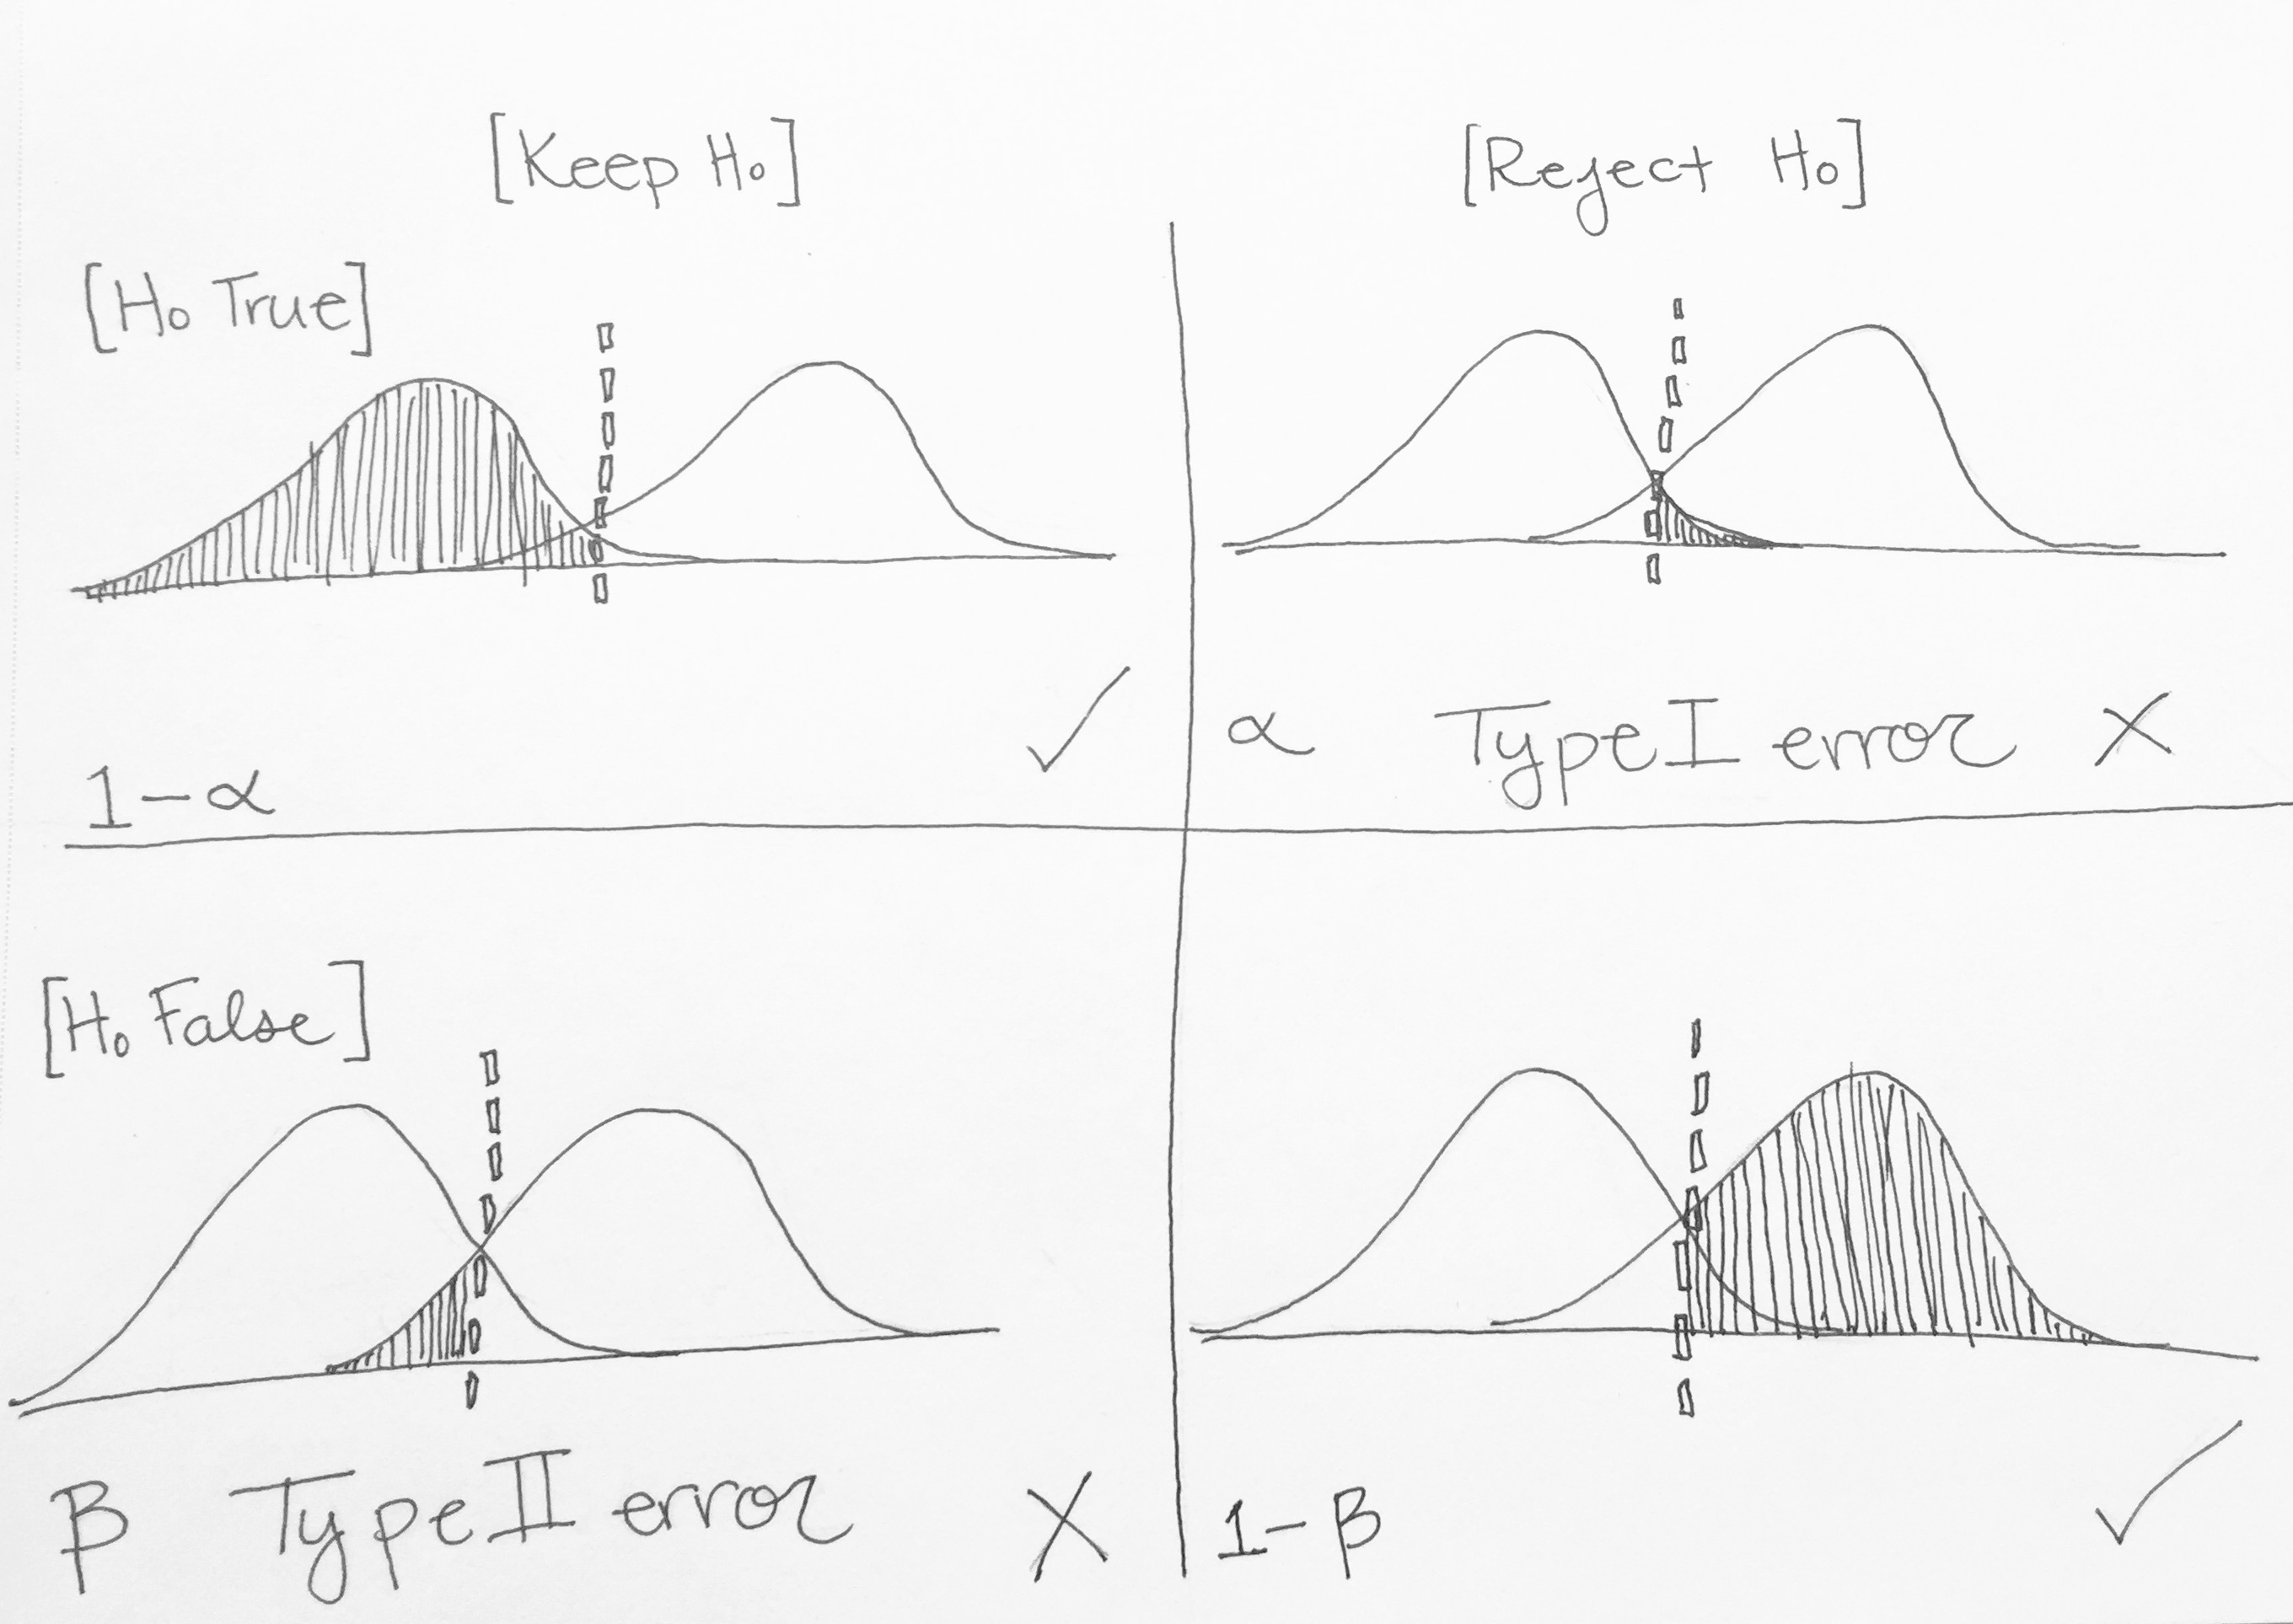 [Keep H₀]
[Reject H₀]
[H₀ True]
1-α ✓
α Type I error X
[H₀ False]
β Type II error X
1-β ✓